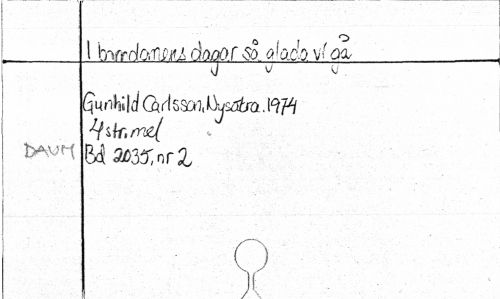 I barndomens dagar så glada vi gå
Gunhild Carlsson, Nysätra. 1974
4 str. mel
DAUM
Bd 2035, nr 2